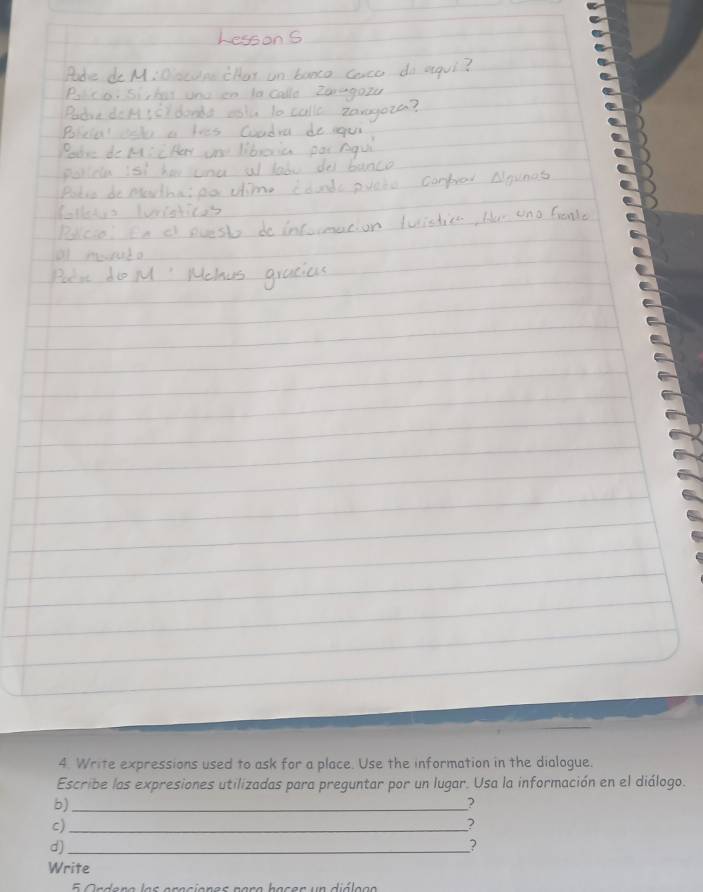 Lesson 5
Padre de M: ¿Hay un banco cerca de aqui?
Policia: Si, hay uno en la calle Zaragoza
Padre de M: ¿donde esta la calle zaragoza?
Policia: esta a tres Cuadra de aqui,
Padre de M: ¿Hay una libreria por Aqui
policia: si hay una al lado del banco
Padre de Martha: por ultimo ¿donde puedo comprar Algunos
folletos turisticos
Policia: En el puesto de informacion turistica, Hay uno frente
al
Padre de M: Mchas gracias
4. Write expressions used to ask for a place. Use the information in the dialogue.
Escribe las expresiones utilizadas para preguntar por un lugar. Usa la información en el diálogo.
b) ?
c) ?
d) ?
Write
5 Ordena las oraciones para hacer un diálogo